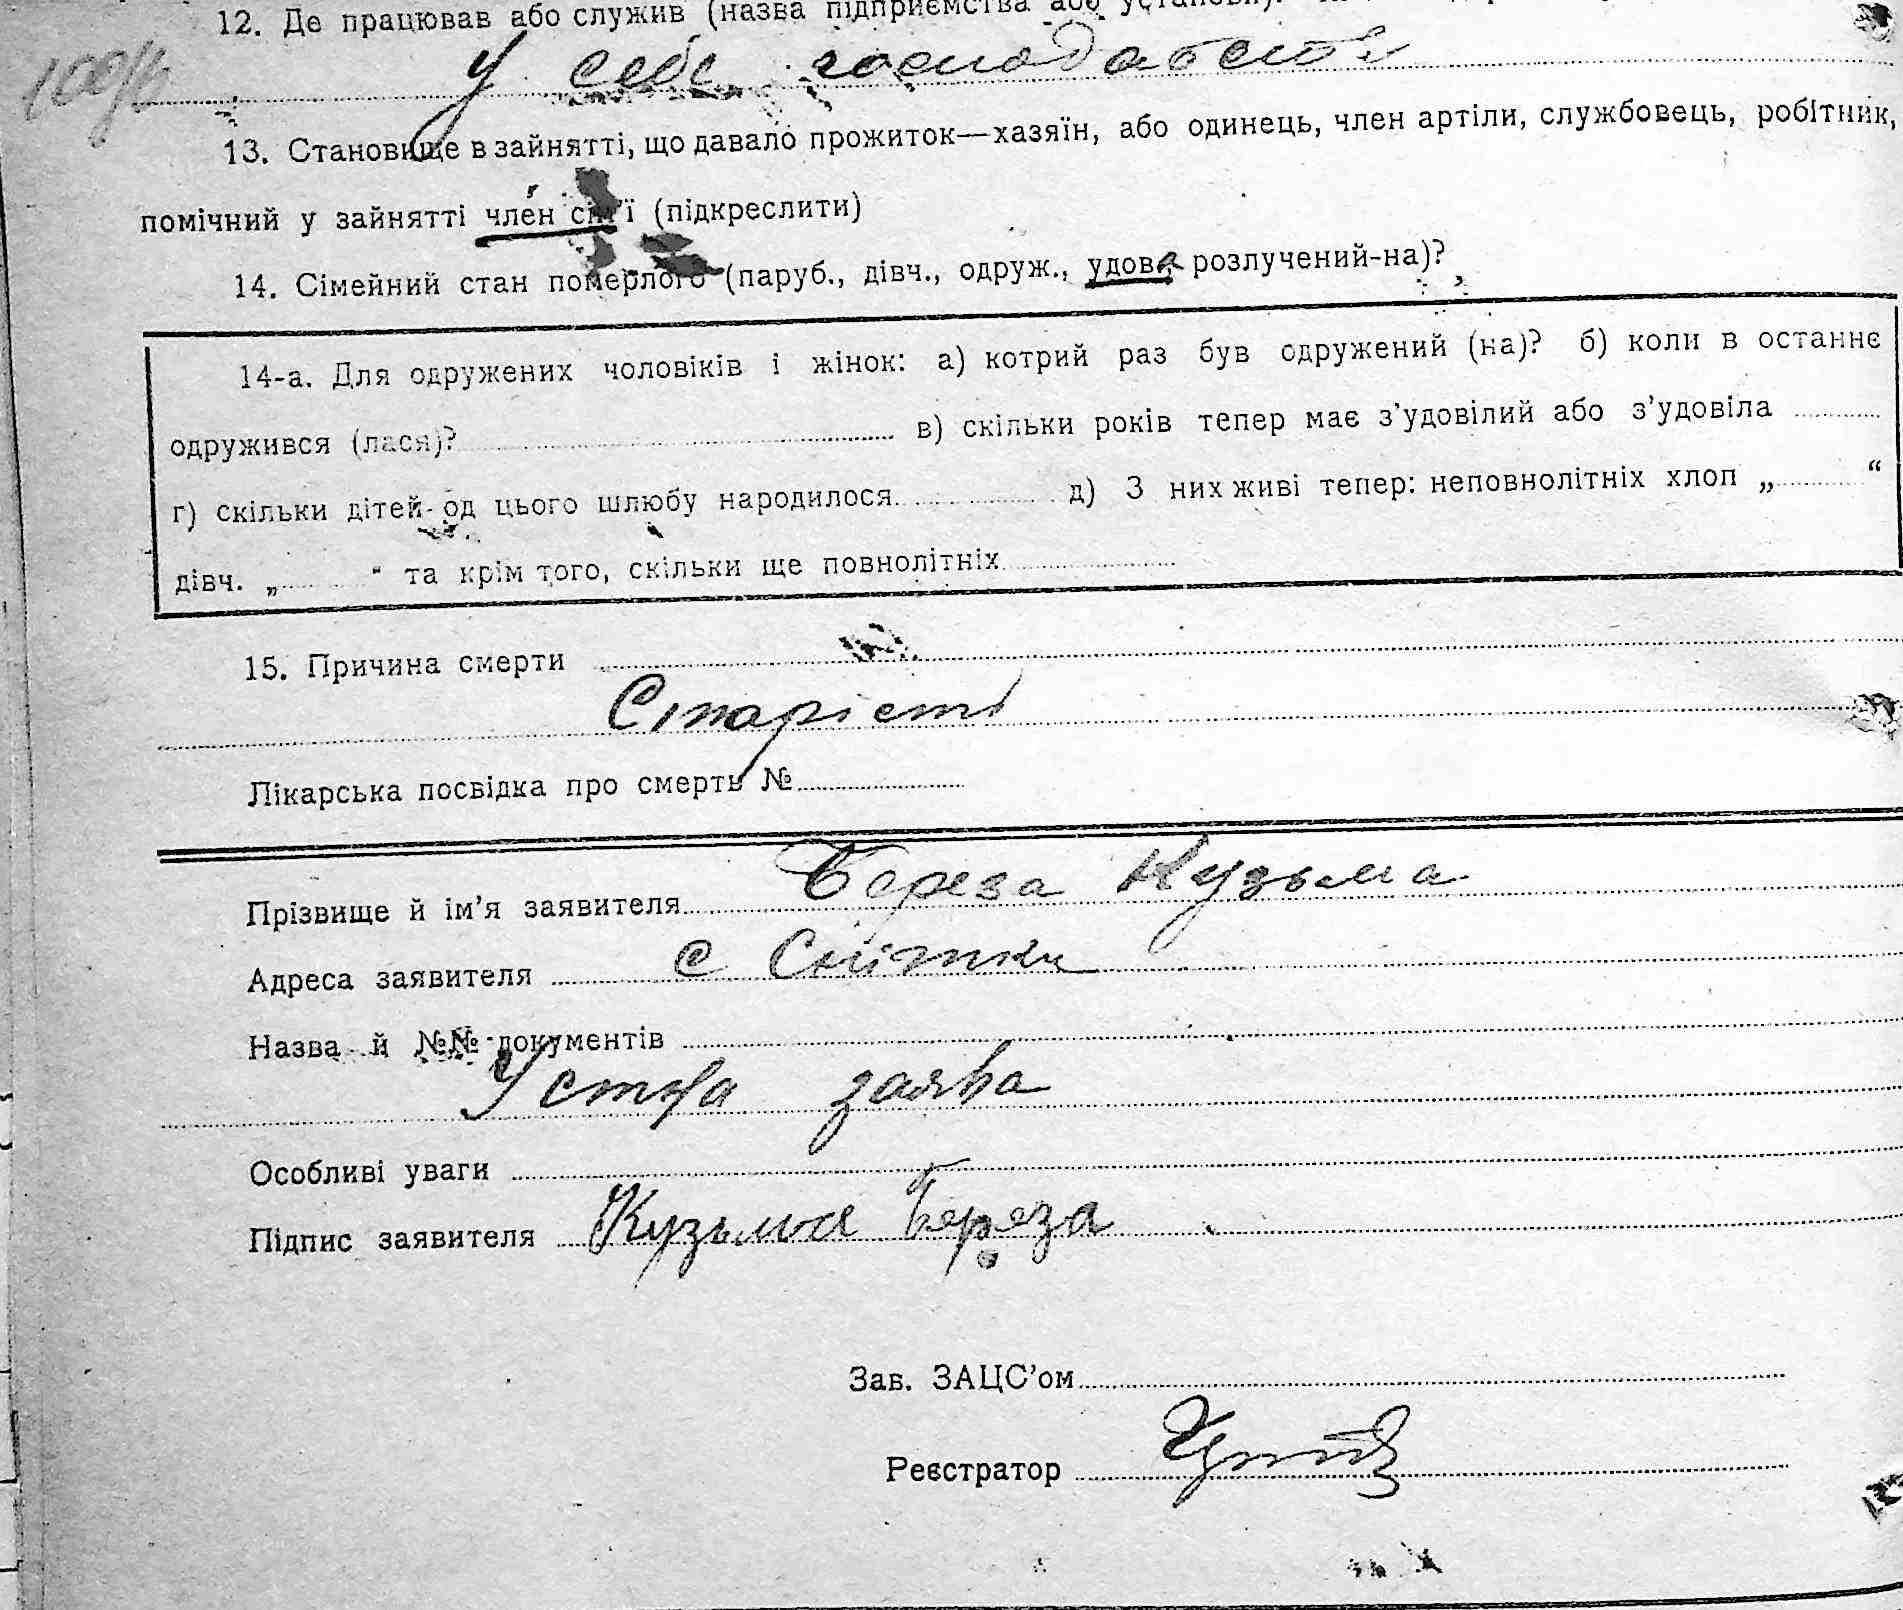 12. Де працював або служив (назва підприємства або установи).
У себе господарстві
100/6
13. Становище в зайнятті, що давало прожиток—хазяїн, або одинець, член артіли, службовець, робітник,
помічний у зайнятті член сім'ї (підкреслити)
14. Сімейний стан померлого (паруб., дівч., одруж., удова, розлучений-на)?
14-а. Для одружених чоловіків і жінок: а) котрий раз був одружений (на)? б) коли в останнє
одружився (лася)? в) скільки років тепер має з'удовілий або з'удовіла
г) скільки дітей од цього шлюбу народилося д) З них живі тепер: неповнолітніх хлоп „ “
дівч. „ “ та крім того, скільки ще повнолітніх
15. Причина смерти
Старість
Лікарська посвідка про смерть №
Прізвище й ім'я заявителя Береза Кузьма
Адреса заявителя с Снітки
Назва й №№ документів
Устна заява
Особливі уваги
Підпис заявителя Кузьма Береза
Зав. ЗАЦС'ом
Реєстратор